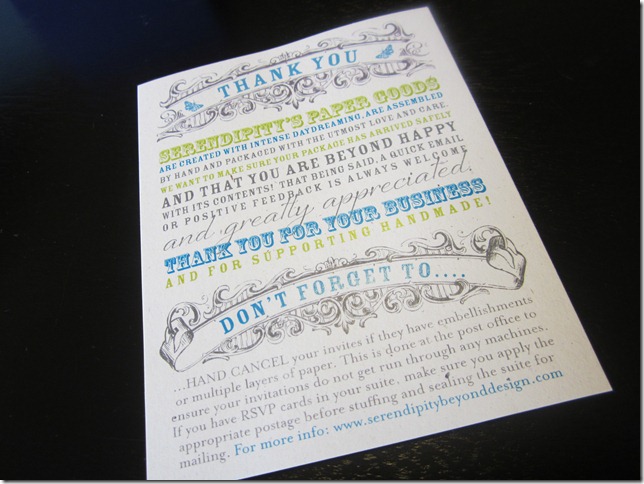 THANK YOU
SERENDIPITY'S PAPER GOODS
ARE CREATED WITH INTENSE DAYDREAMING, ARE ASSEMBLED
BY HAND AND PACKAGED WITH THE UTMOST LOVE AND CARE.
WE WANT TO MAKE SURE YOUR PACKAGE HAS ARRIVED SAFELY
AND THAT YOU ARE BEYOND HAPPY
WITH ITS CONTENTS! THAT BEING SAID, A QUICK EMAIL
OR POSITIVE FEEDBACK IS ALWAYS WELCOME
and greatly appreciated.
THANK YOU FOR YOUR BUSINESS
AND FOR SUPPORTING HANDMADE!
DON'T FORGET TO....
...HAND CANCEL your invites if they have embellishments
or multiple layers of paper. This is done at the post office to
ensure your invitations do not get run through any machines.
If you have RSVP cards in your suite, make sure you apply the
appropriate postage before stuffing and sealing the suite for
mailing. For more info: www.serendipitybeyonddesign.com